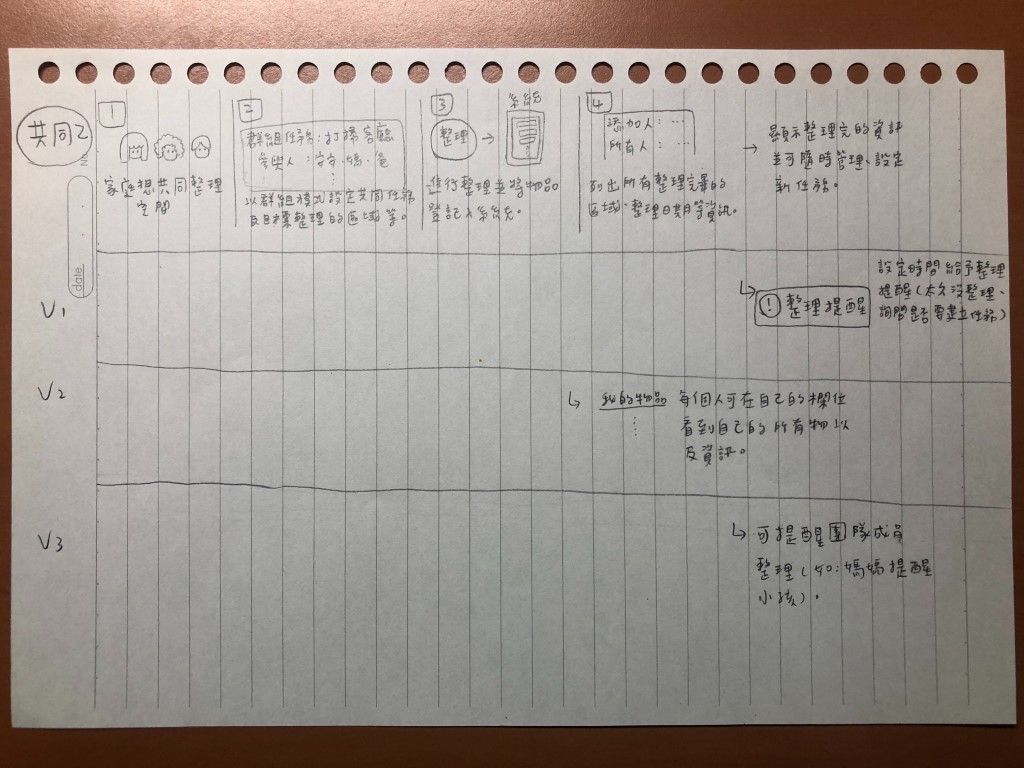 共同2
date
1
家庭想共同整理
空間
2
群組任務:打掃客廳
參與人:安安、媽、爸
以群組模式設定共同任務
及目標整理的區域等。
3
整理
系統
進行整理並將物品
登記入系統。
4
添加人:…
所有人:…
列出所有整理完畢的
區域、整理日期等資訊。
顯示整理完的資訊
並可隨時管理、設定
新任務。
V1
! 整理提醒
設定時間給予整理
提醒(太久沒整理、
詢問是否需要建立任務)
V2
我的物品
每個人可在自己的欄位
看到自己的所有物以
及資訊。
V3
可提醒團隊成員
整理(如:媽媽提醒
小孩)。